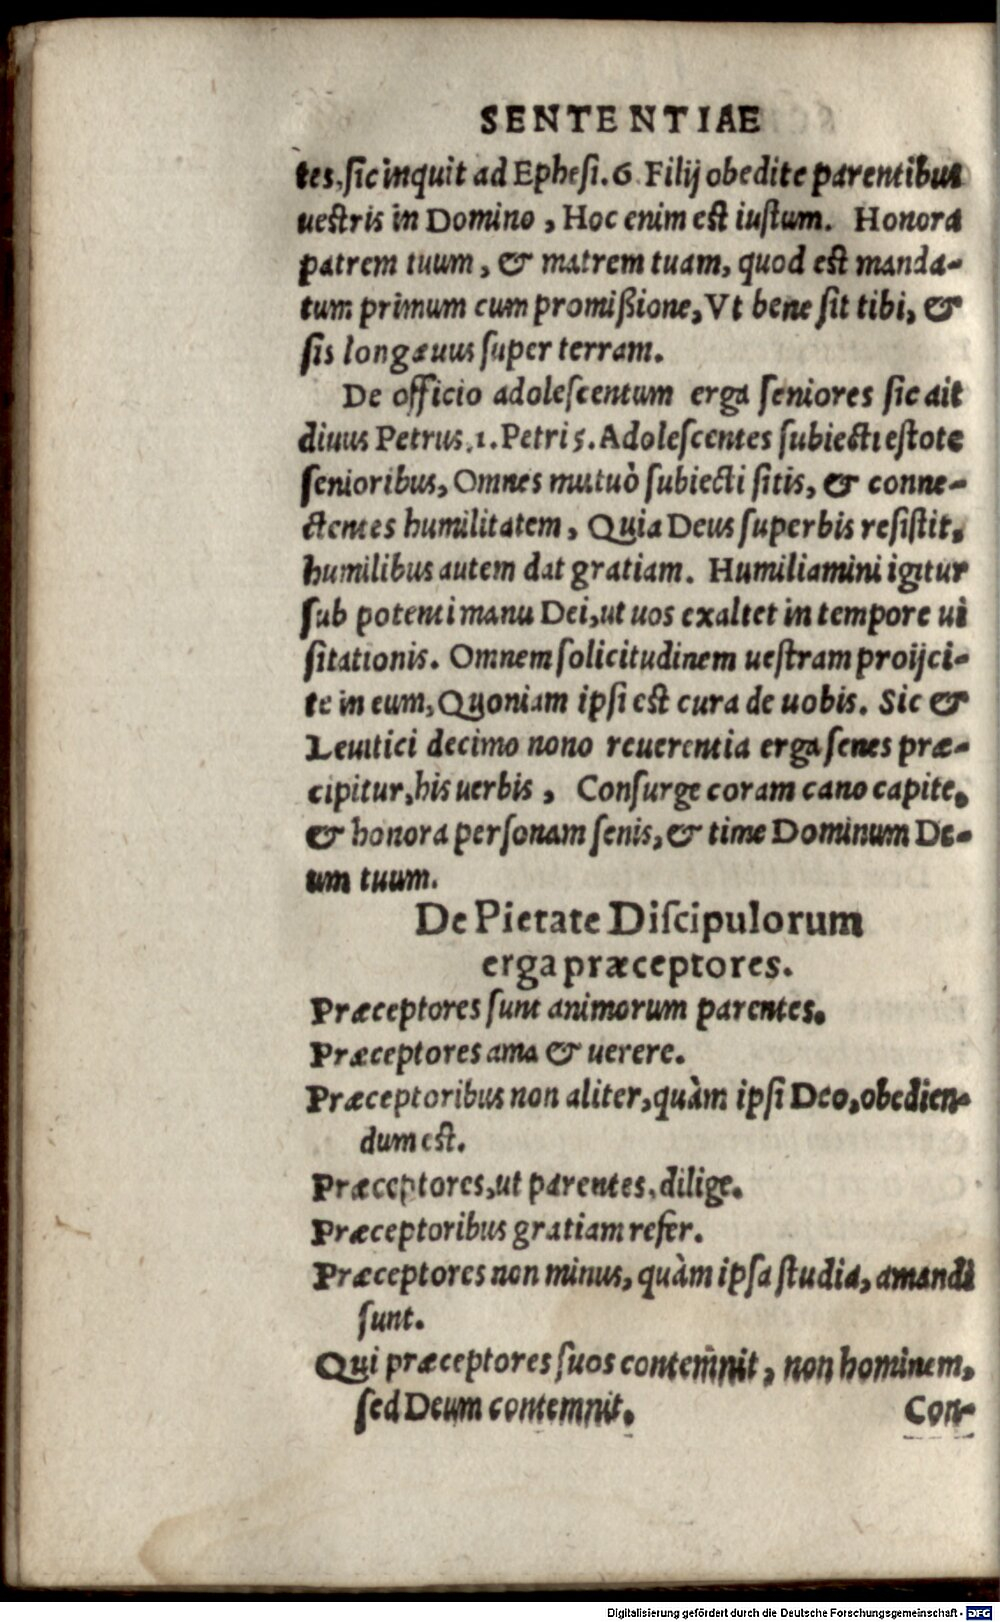 SENTENTIAE
tes, sic inquit ad Ephesi. 6 Filij obedite parentibus
uestris in Domino, Hoc enim est iustum. Honora
patrem tuum, & matrem tuam, quod est manda-
tum primum cum promißione, Vt bene sit tibi, &
sis longæuus super terram.
De officio adolescentum erga seniores sic ait
diuus Petrus, 1. Petri 5. Adolescentes subiecti estote
senioribus, Omnes mutuò subiecti sitis, & conne-
ctentes humilitatem, Quia Deus superbis resistit,
humilibus autem dat gratiam. Humiliamini igitur
sub potenti manu Dei, ut uos exaltet in tempore ui
sitationis. Omnem solicitudinem uestram proijci-
te in eum, Quoniam ipsi est cura de uobis. Sic &
Leuitici decimo nono reuerentia erga senes præ-
cipitur, his uerbis, Consurge coram cano capite,
& honora personam senis, & time Dominum De-
um tuum.
De Pietate Discipulorum
erga præceptores.
Præceptores sunt animorum parentes.
Præceptores ama & uerere.
Præceptoribus non aliter, quàm ipsi Deo, obedien-
dum est.
Præceptores, ut parentes, dilige.
Præceptoribus gratiam refer.
Præceptores non minus, quàm ipsa studia, amandi
sunt.
Qui præceptores suos contem̃nit, non hominem,
sed Deum contemnit.
Con-
Digitalisierung gefördert durch die Deutsche Forschungsgemeinschaft - DFG